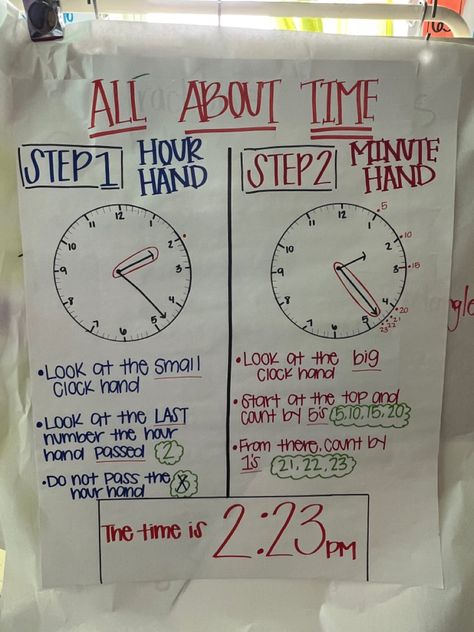 ALL ABOUT TIME
STEP 1 HOUR
HAND
12
1
2
3
4
5
6
7
8
9
10
11
• Look at the small
clock hand
• Look at the LAST
number the hour
hand passed 2
• Do not pass the
hour hand 3
STEP 2 MINUTE
HAND
12
1
2
3
4
5
6
7
8
9
10
11
5
10
15
20
21
22
23
• Look at the big
clock hand
• Start at the top and
count by 5's 5, 10, 15, 20
• From there, count by
1's 21, 22, 23
The time is 2:23 PM